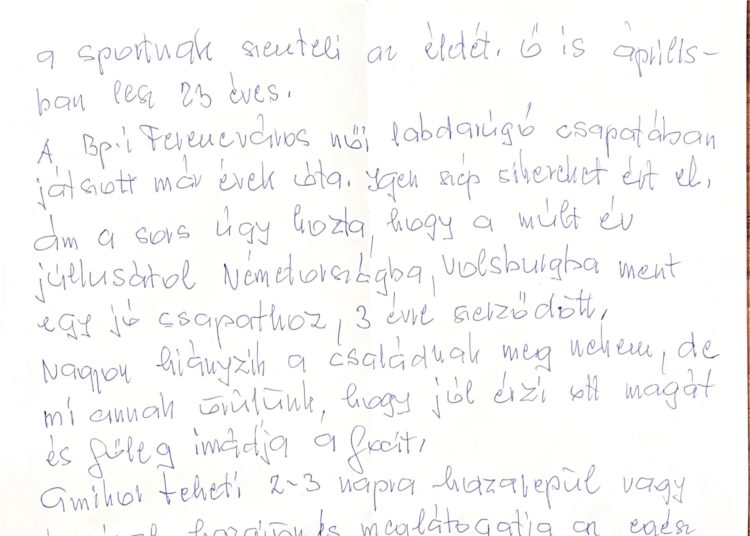 a sportnak szenteli az életét. Ő is április-
ban lesz 23 éves.
A Bp.-i Ferencváros női labdarúgó csapatában
játszott már évek óta. Igen szép sikereket ért el,
ám a sors úgy hozta, hogy a múlt év
júliusától Németországba, Volsburgba ment
egy jó csapathoz, 3 évre szerződött,
Nagyon hiányzik a családnak meg nekem, de
mi annak örülünk, hogy jól érzi ott magát
és főleg imádja a focit,
amikor teheti 2-3 napra hazarepül vagy
hozzánk meglátogatja az egész